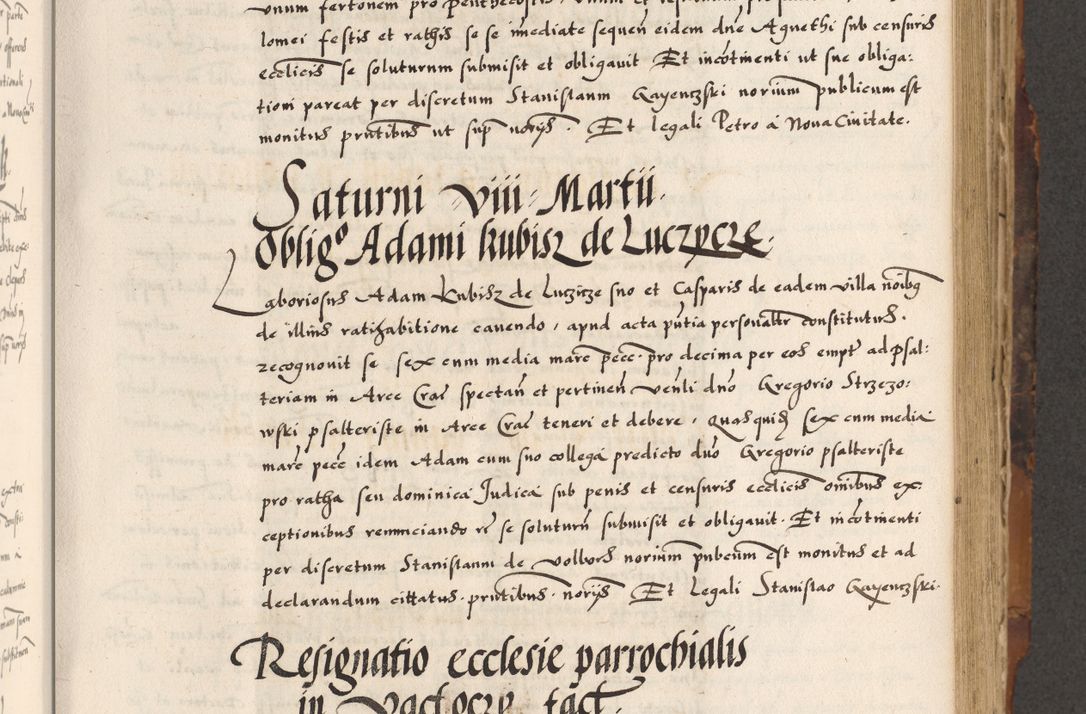 vnum fertonem pro penthecostes
lomei festis et rathis se se īmediate sequeñ eidem dne Agnethi sub censuris
ecclīcis se soluturum submisit et obligauit Et incōtinenti ut sue obliga:
tioni pareat per discretum Stanislaum Gayenczski norium publicum est
monitus pn̄tibus ut sup̄ norijs. Et legali Petro á Noua Ciuitate.
Saturni viii Martii
Oblig° Adami kubisz de Luczycze
Laboriosus Adam Kubisz de Luczicze suo et Casparis de eadem villa noībq
de illius ratihabitione cauendo, apud acta pn̄tia personalr̄ constitutus.
recognouit se sex cum media marc̄ pecc̄ pro decima per eos empt̄ ad psal:
teriam in Arce Crac̄ spectañ et pertineñ Veñli dño Gregorio Strzezo:
wski psalteriste in Arce Crac̄ teneri et debere, Quasquid sex cum media
marc̄ pecc̄ idem Adam cum suo collega predicto dño Gregorio psalteriste
pro ratha seu dominica Judica sub penis et censuris ecclīcis omībus ex
ceptionibus renunciando rē se soluturū submisit et obligauit. Et incōtinenti
per discretum Stanislaum de Volbors norium pubcum est monitus et ad
declarandum cittatus. pn̄tibus. norijs Et Legali Stanislao Gayenczski.
Resignatio ecclesie parrochialis
in